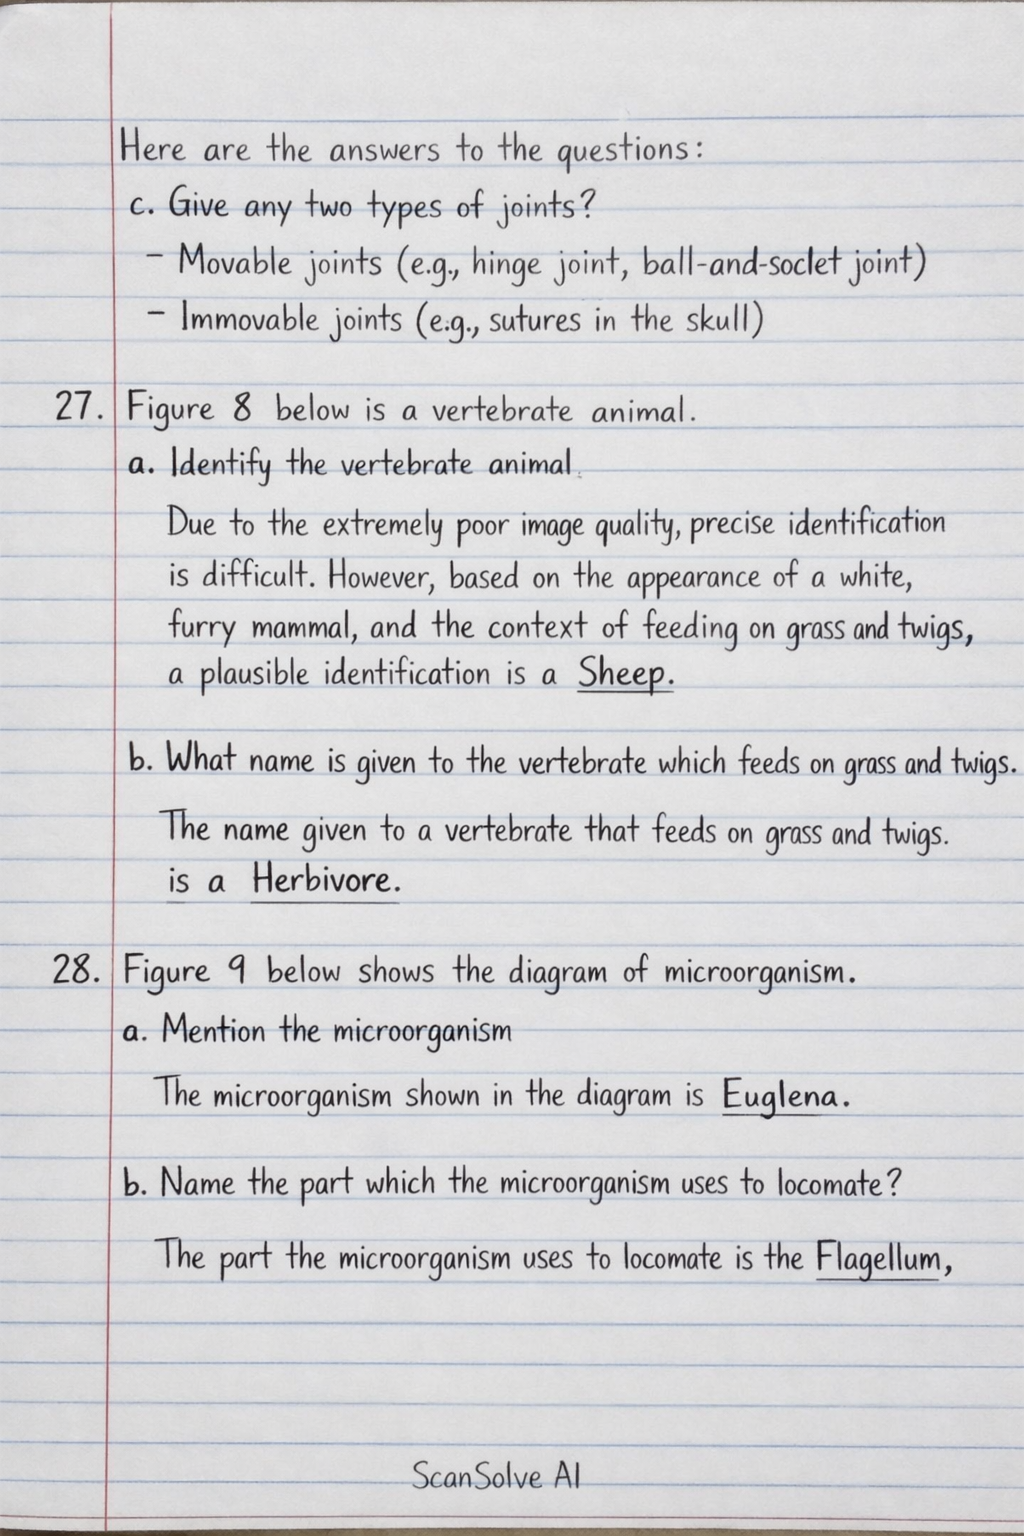 Here are the answers to the questions:
c. Give any two types of joints?
– Movable joints (e.g., hinge joint, ball-and-soclet joint)
– Immovable joints (e.g., sutures in the skull)
27. Figure 8 below is a vertebrate animal.
a. Identify the vertebrate animal.
Due to the extremely poor image quality, precise identification
is difficult. However, based on the appearance of a white,
furry mammal, and the context of feeding on grass and twigs,
a plausible identification is a Sheep.
b. What name is given to the vertebrate which feeds on grass and twigs.
The name given to a vertebrate that feeds on grass and twigs.
is a Herbivore.
28. Figure 9 below shows the diagram of microorganism.
a. Mention the microorganism
The microorganism shown in the diagram is Euglena.
b. Name the part which the microorganism uses to locomate?
The part the microorganism uses to locomate is the Flagellum,
ScanSolve AI